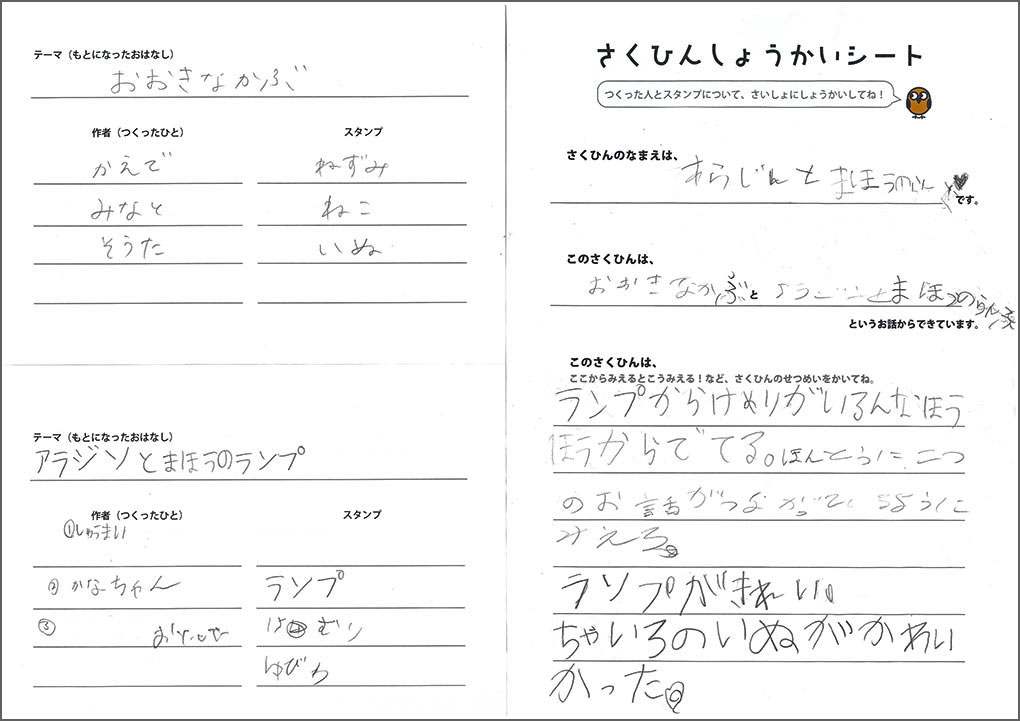 テーマ（もとになったおはなし）
おおきなかぶ
作者（つくったひと） スタンプ
かえで ねずみ
みなと ねこ
そうた いぬ
テーマ（もとになったおはなし）
アラジンとまほうのランプ
作者（つくったひと） スタンプ
①しゅうまい
②かなちゃん ランプ
③ けむり
ゆびわ
さくひんしょうかいシート
つくった人とスタンプについて、さいしょにしょうかいしてね！
さくひんのなまえは、
あらじんとまほうの
です。
このさくひんは、
おおきなかぶと まほうのらんぷ
というお話からできています。
このさくひんは、
ここからみえるとこうみえる！など、さくひんのせつめいをかいてね。
ランプからけむりがいろんなほう
ほうからでてる。ほんとうに二つ
のお話がつながっているように
みえる。
ランプがきれい。
ちゃいろのいぬがかわい
かった。